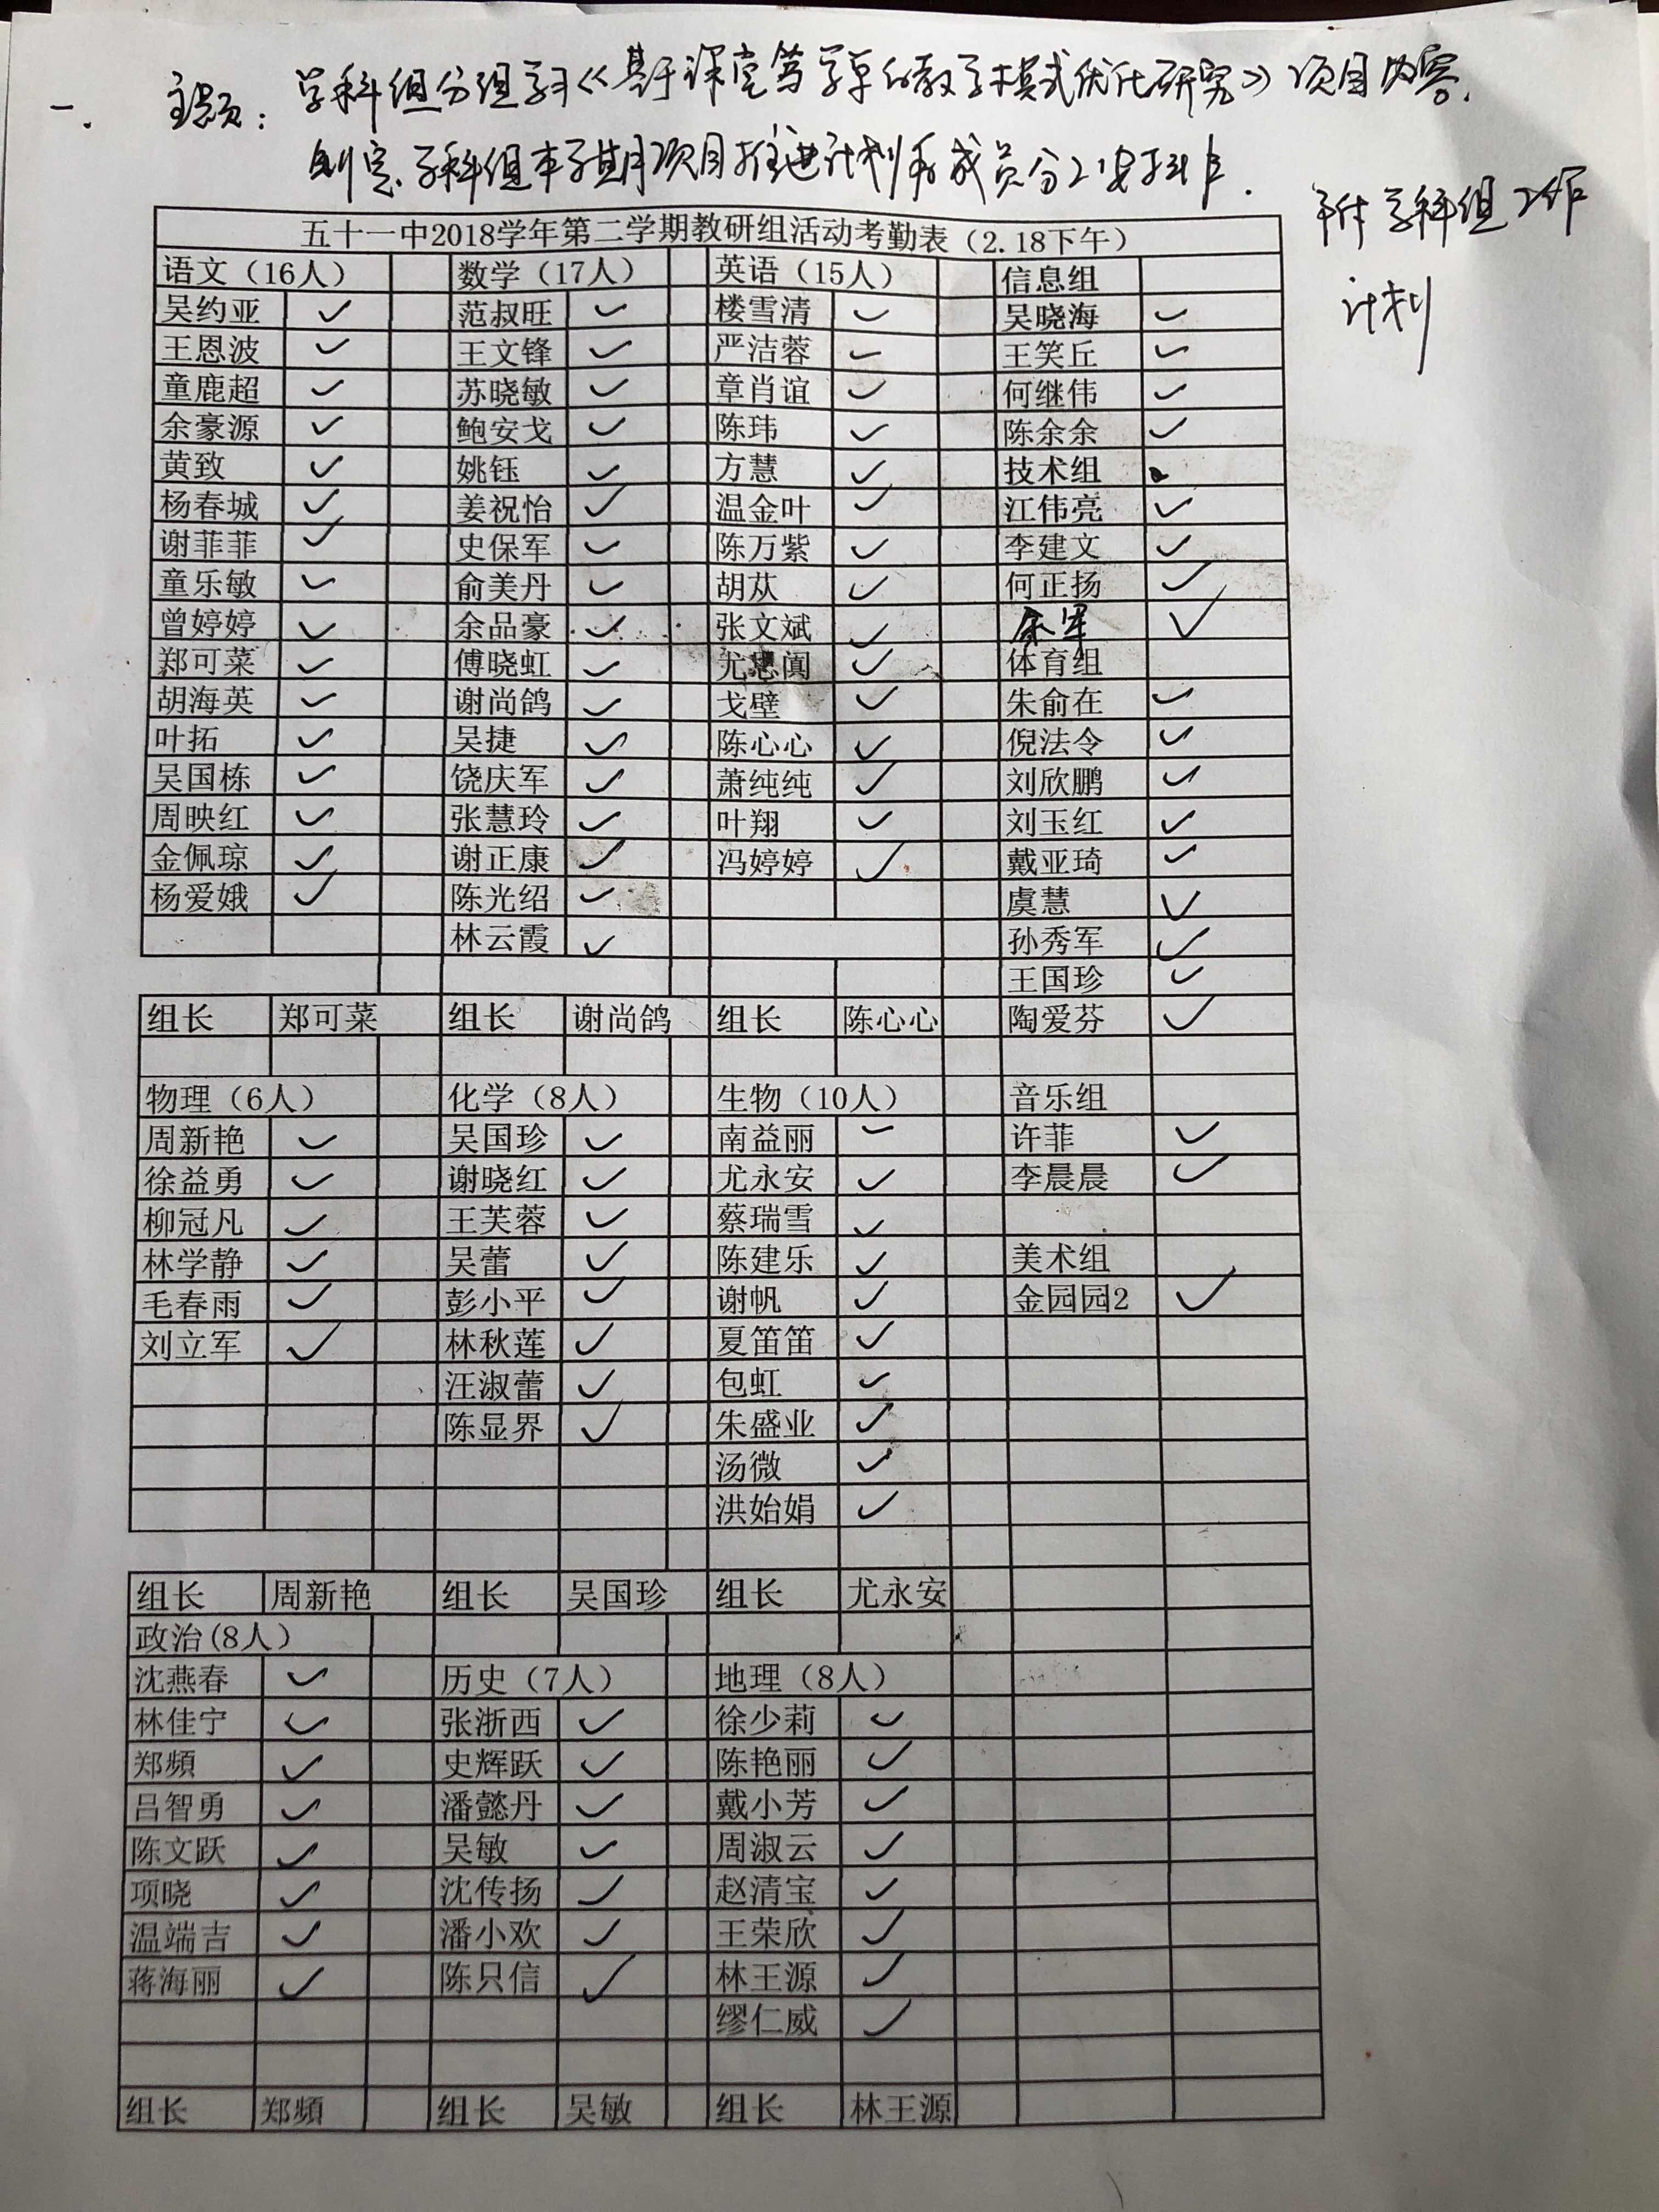 一. 主题: 学科组分组学习《基于课堂笃学单的教学模式优化研究》项目内容.
制定学科组本学期项目推进计划和成员分工安排.
附学科组工作
计划
五十一中2018学年第二学期教研组活动考勤表（2.18下午）
语文（16人） 数学（17人） 英语（15人） 信息组
吴约亚 ✓ 范叔旺 ✓ 楼雪清 ✓ 吴晓海 ✓
王恩波 ✓ 王文锋 ✓ 严洁蓉 ✓ 王笑丘 ✓
童鹿超 ✓ 苏晓敏 ✓ 章肖谊 ✓ 何继伟 ✓
余豪源 ✓ 鲍安戈 ✓ 陈玮 ✓ 陈余余 ✓
黄致 ✓ 姚钰 ✓ 方慧 ✓ 技术组
杨春城 ✓ 姜祝怡 ✓ 温金叶 ✓ 江伟亮 ✓
谢菲菲 ✓ 史保军 ✓ 陈万紫 ✓ 李建文 ✓
童乐敏 ✓ 俞美丹 ✓ 胡苁 ✓ 何正扬 ✓
曾婷婷 ✓ 余品豪 ✓ 张文斌 ✓ 余军 ✓
郑可菜 ✓ 傅晓虹 ✓ 尤思阗 ✓ 体育组
胡海英 ✓ 谢尚鸽 ✓ 戈壁 ✓ 朱俞在 ✓
叶拓 ✓ 吴捷 ✓ 陈心心 ✓ 倪法令 ✓
吴国栋 ✓ 饶庆军 ✓ 萧纯纯 ✓ 刘欣鹏 ✓
周映红 ✓ 张慧玲 ✓ 叶翔 ✓ 刘玉红 ✓
金佩琼 ✓ 谢正康 ✓ 冯婷婷 ✓ 戴亚琦 ✓
杨爱娥 ✓ 陈光绍 ✓ 虞慧 ✓
林云霞 ✓ 孙秀军 ✓
王国珍 ✓
组长 郑可菜 组长 谢尚鸽 组长 陈心心 陶爱芬 ✓
物理（6人） 化学（8人） 生物（10人） 音乐组
周新艳 ✓ 吴国珍 ✓ 南益丽 ✓ 许菲 ✓
徐益勇 ✓ 谢晓红 ✓ 尤永安 ✓ 李晨晨 ✓
柳冠凡 ✓ 王芙蓉 ✓ 蔡瑞雪 ✓
林学静 ✓ 吴蕾 ✓ 陈建乐 ✓ 美术组
毛春雨 ✓ 彭小平 ✓ 谢帆 ✓ 金园园2 ✓
刘立军 ✓ 林秋莲 ✓ 夏笛笛 ✓
汪淑蕾 ✓ 包虹 ✓
陈显界 ✓ 朱盛业 ✓
汤微 ✓
洪始娟 ✓
组长 周新艳 组长 吴国珍 组长 尤永安
政治(8人)
沈燕春 ✓ 历史（7人） 地理（8人）
林佳宁 ✓ 张浙西 ✓ 徐少莉 ✓
郑頻 ✓ 史辉跃 ✓ 陈艳丽 ✓
吕智勇 ✓ 潘懿丹 ✓ 戴小芳 ✓
陈文跃 ✓ 吴敏 ✓ 周淑云 ✓
项晓 ✓ 沈传扬 ✓ 赵清宝 ✓
温端吉 ✓ 潘小欢 ✓ 王荣欣 ✓
蒋海丽 ✓ 陈只信 ✓ 林王源 ✓
缪仁威 ✓
组长 郑頻 组长 吴敏 组长 林王源